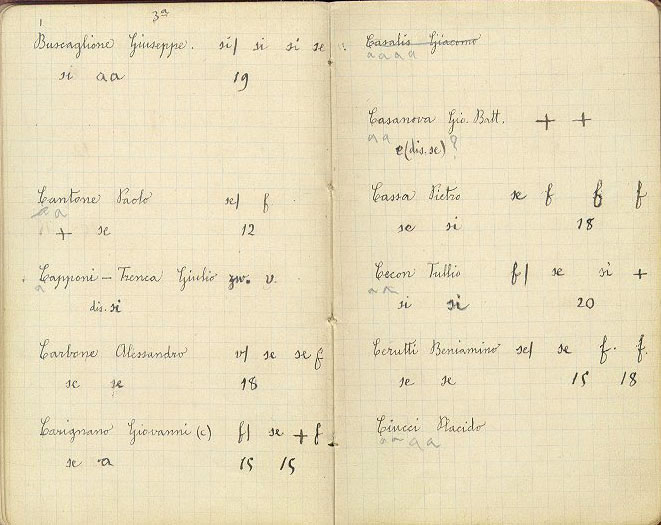 3ª
Buscaglione Giuseppe. si/ si si se
si aa 19
Cantone Paolo se/ f
a a
+ se 12
Capponi – Trenca Giulio zw. v.
a
dis. si
Carbone Alessandro v/ se se f
se se 18
Carignano Giovanni (c) f/ se + f
se a 15 15
Casalis Giacomo
a a a a
Casanova Gio. Batt. + +
a a
e (dis. se) ?
Cassa Pietro se f f f
se si 18
Cecon Tullio f/ se si +
a a
si si 20
Cerutti Beniamino se/ se f. f.
se se 15 18
Ciucci Placido
a a a a